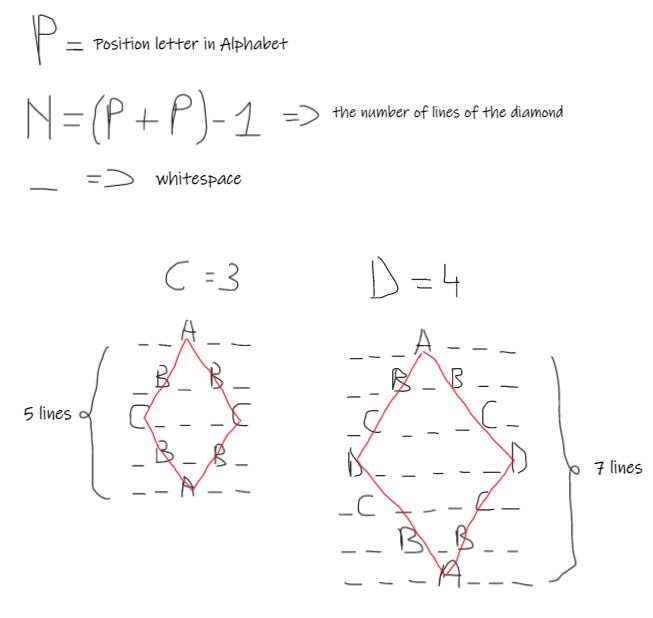 P = Position letter in Alphabet
N=(P+P)-1 => the number of lines of the diamond
_ => whitespace
C = 3
_ _ A _ _
_ B _ B _
C _ _ _ C
_ B _ B _
_ _ A _ _
5 lines
D = 4
_ _ _ A _ _ _
_ _ B _ B _ _
_ C _ _ _ C _
D _ _ _ _ _ D
_ C _ _ _ C _
_ _ B _ B _ _
_ _ _ A _ _ _
7 lines